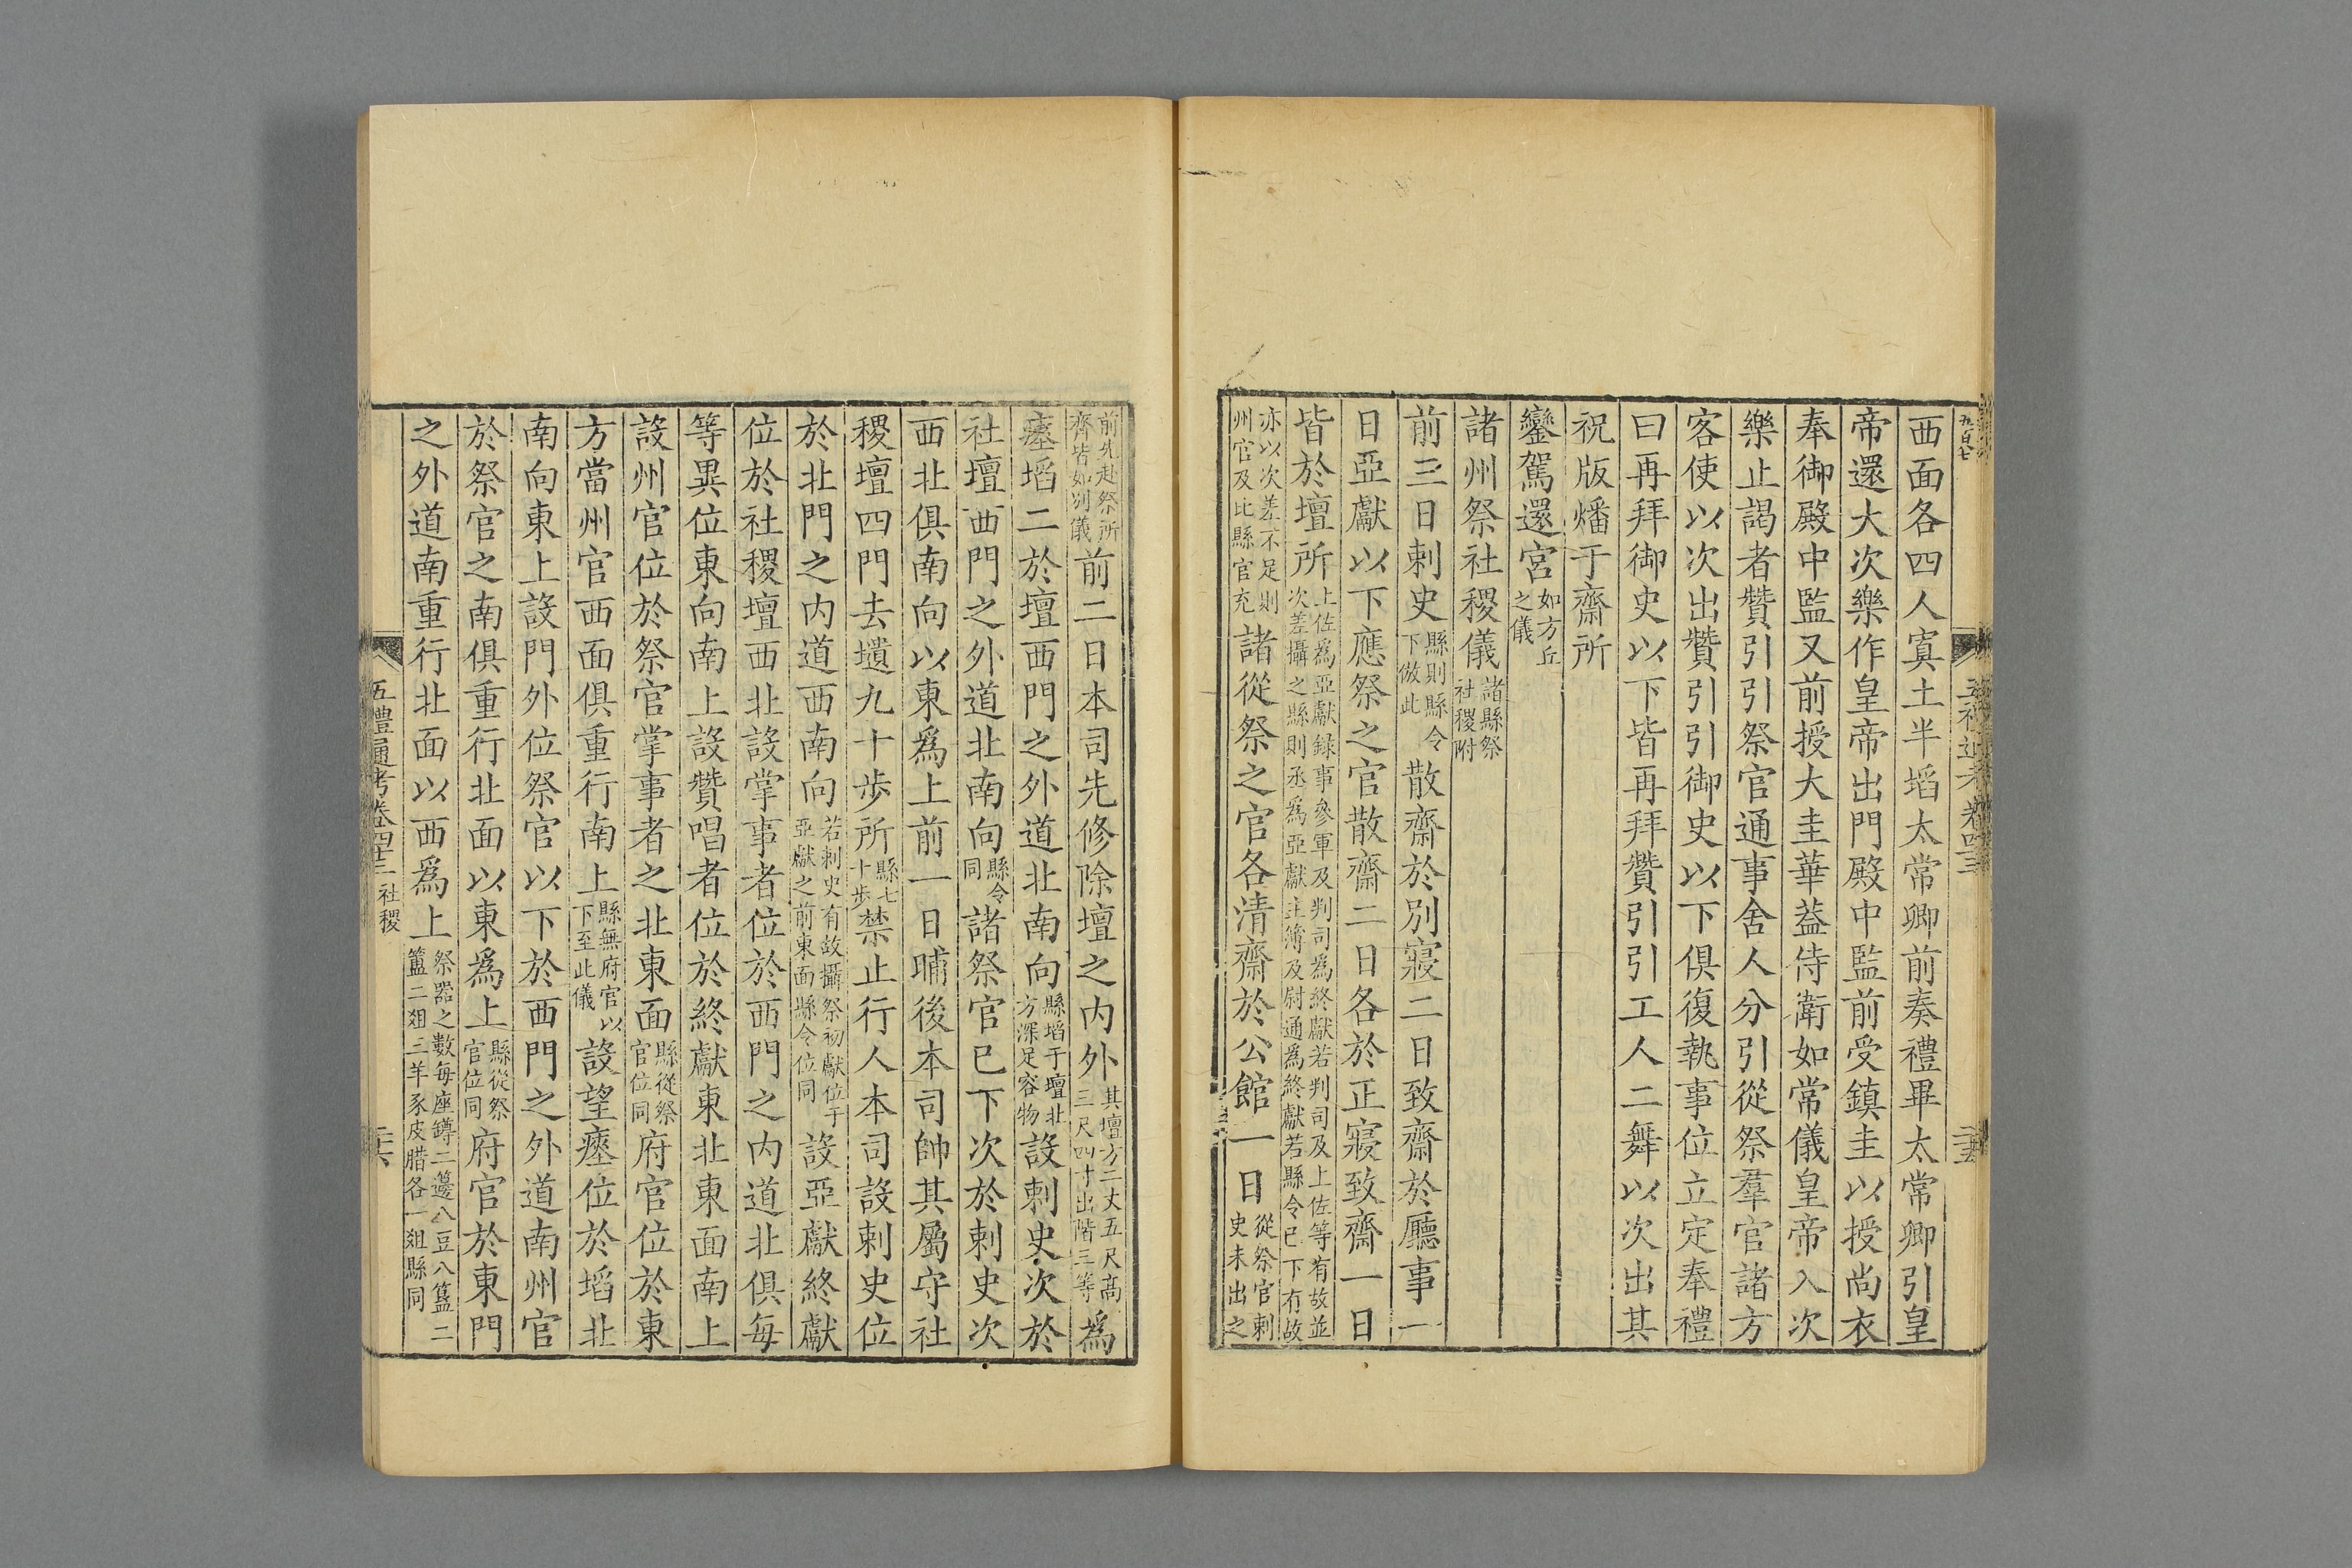 西面各四人寘土半埳太常卿前奏禮畢太常卿引皇
帝還大次樂作皇帝出門殿中監前受鎮圭以授尚衣
奉御殿中監又前授大圭華蓋侍衛如常儀皇帝入次
樂止謁者贊引引祭官通事舍人分引從祭羣官諸方
客使以次出贊引引御史以下俱復執事位立定奉禮
曰再拜御史以下皆再拜贊引引工人二舞以次出其
祝版燔于齋所
鑾駕還宮如方丘之儀
諸州祭社稷儀諸縣祭社稷附
前三日刺史縣則縣令下倣此散齋於別寢二日致齋於廳事一
日亞獻以下應祭之官散齋二日各於正寢致齋一日
皆於壇所上佐爲亞獻録事參軍及判司爲終獻若判司及上佐等有故並次差攝之縣則丞爲亞獻主簿及尉通爲終獻若縣令已下有故
亦以次差不足則州官及比縣官充諸從祭之官各清齋於公館一日從祭官刺史未出之
前先赴祭所齊皆如別儀前二日本司先修除壇之内外其壇方二丈五尺高三尺四寸出階三等爲
瘞埳二於壇西門之外道北南向縣埳于壇北方深足容物設刺史次於
社壇西門之外道北南向縣令同諸祭官已下次於刺史次
西北俱南向以東爲上前一日晡後本司帥其屬守社
稷壇四門去壝九十步所縣七十步禁止行人本司設刺史位
於北門之内道西南向若刺史有故攝祭初獻位于亞獻之前東面縣令位同設亞獻終獻
位於社稷壇西北設掌事者位於西門之内道北俱每
等異位東向南上設贊唱者位於終獻東北東面南上
設州官位於祭官掌事者之北東面縣從祭官位同府官位於東
方當州官西面俱重行南上縣無府官以下至此儀設望瘞位於埳北
南向東上設門外位祭官以下於西門之外道南州官
於祭官之南俱重行北面以東爲上縣從祭官位同府官於東門
之外道南重行北面以西爲上祭器之數每座罇二籩八豆八簋二簠二俎三羊豕皮腊各一俎縣同
五禮通考卷四十三 社稷
二十六